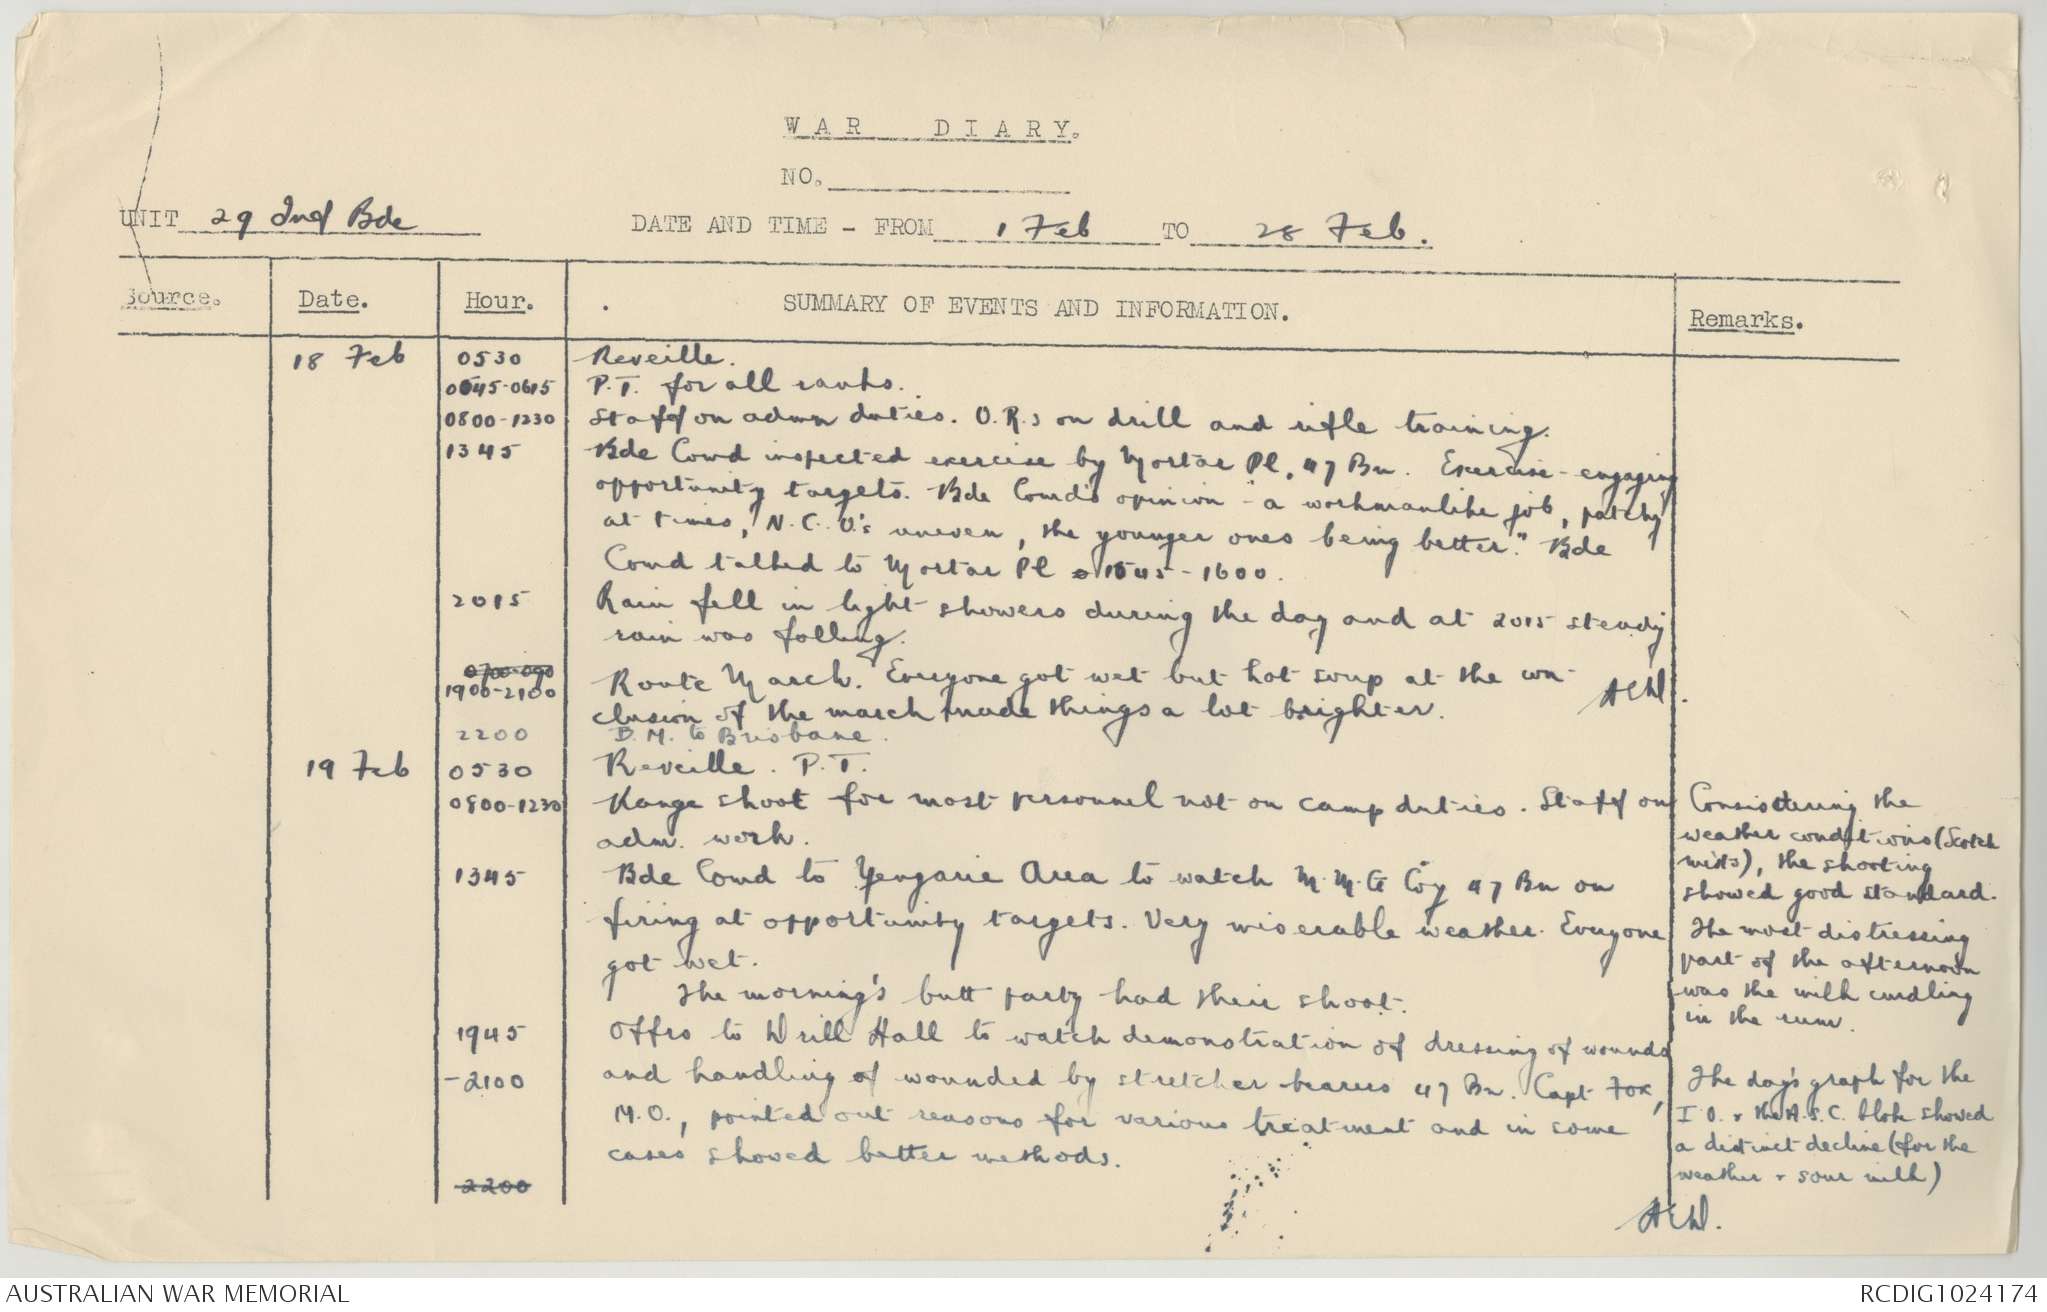 WAR DIARY.
NO.
UNIT 29 Inf Bde
DATE AND TIME - FROM 1 Feb TO 28 Feb.
Source.
Date.
Hour.
SUMMARY OF EVENTS AND INFORMATION.
Remarks.
18 Feb 0530 Reveille.
0545-0615 P.T. for all ranks.
0800-1230 Staff on admn duties. O.R.s on drill and rifle training.
1345 Bde Comd inspected exercise by Mortar Pl, 47 Bn. Exercise - engaging
opportunity targets. Bde Comd's opinion - "a workmanlike job, patchy
at times, N.C.O's uneven, the younger ones being better." Bde
Comd talked to Mortar Pl 1545-1600.
2015 Rain fell in light showers during the day and at 2015 steady
rain was falling.
0700-090
1900-2100 Route March. Everyone got wet but hot soup at the con-
clusion of the march made things a lot brighter.
AEW.
2200 B.M. to Brisbane.
19 Feb 0530 Reveille. P.T.
0800-1230 Range shoot for most personnel not on camp duties. Staff on
adm. work.
Considering the
weather conditions (Scotch
mists), the shooting
showed good standard.
1345 Bde Comd to Yengarie Area to watch M.M.G Coy 47 Bn on
firing at opportunity targets. Very miserable weather. Everyone
got wet.
The morning's butt party had their shoot.
The most distressing
part of the afternoon
was the milk curdling
in the rum.
1945 Offrs to Drill Hall to watch demonstration of dressing of wounds
-2100 and handling of wounded by stretcher bearers 47 Bn. Capt Fox,
M.O., pointed out reasons for various treatment and in some
cases showed better methods.
2200
The day's graph for the
I.O. & the A.S.C. bloke showed
a distinct decline (for the
weather & sour milk)
AEW.
AUSTRALIAN WAR MEMORIAL
RCDIG1024174